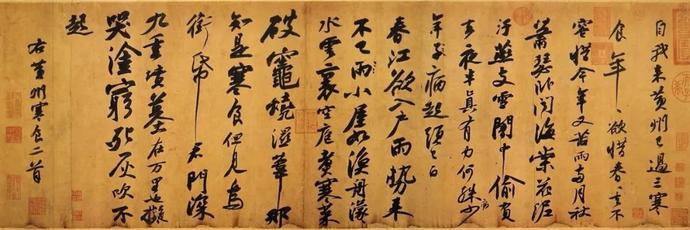 自我來黃州已過三寒
食年〻欲惜春〻去不
容惜今年又苦雨兩月秋
蕭瑟臥聞海棠花泥
汙燕支雪闇中偷負
去夜半真有力何殊病少
年子病起頭已白
春江欲入戶雨勢來
不已雨小屋如漁舟濛〻
水雲裏空庖煮寒菜
破竈燒濕葦那
知是寒食但見烏
銜帋君門深
九重墳墓在万里也擬
哭塗窮死灰吹不
起
右黃州寒食二首